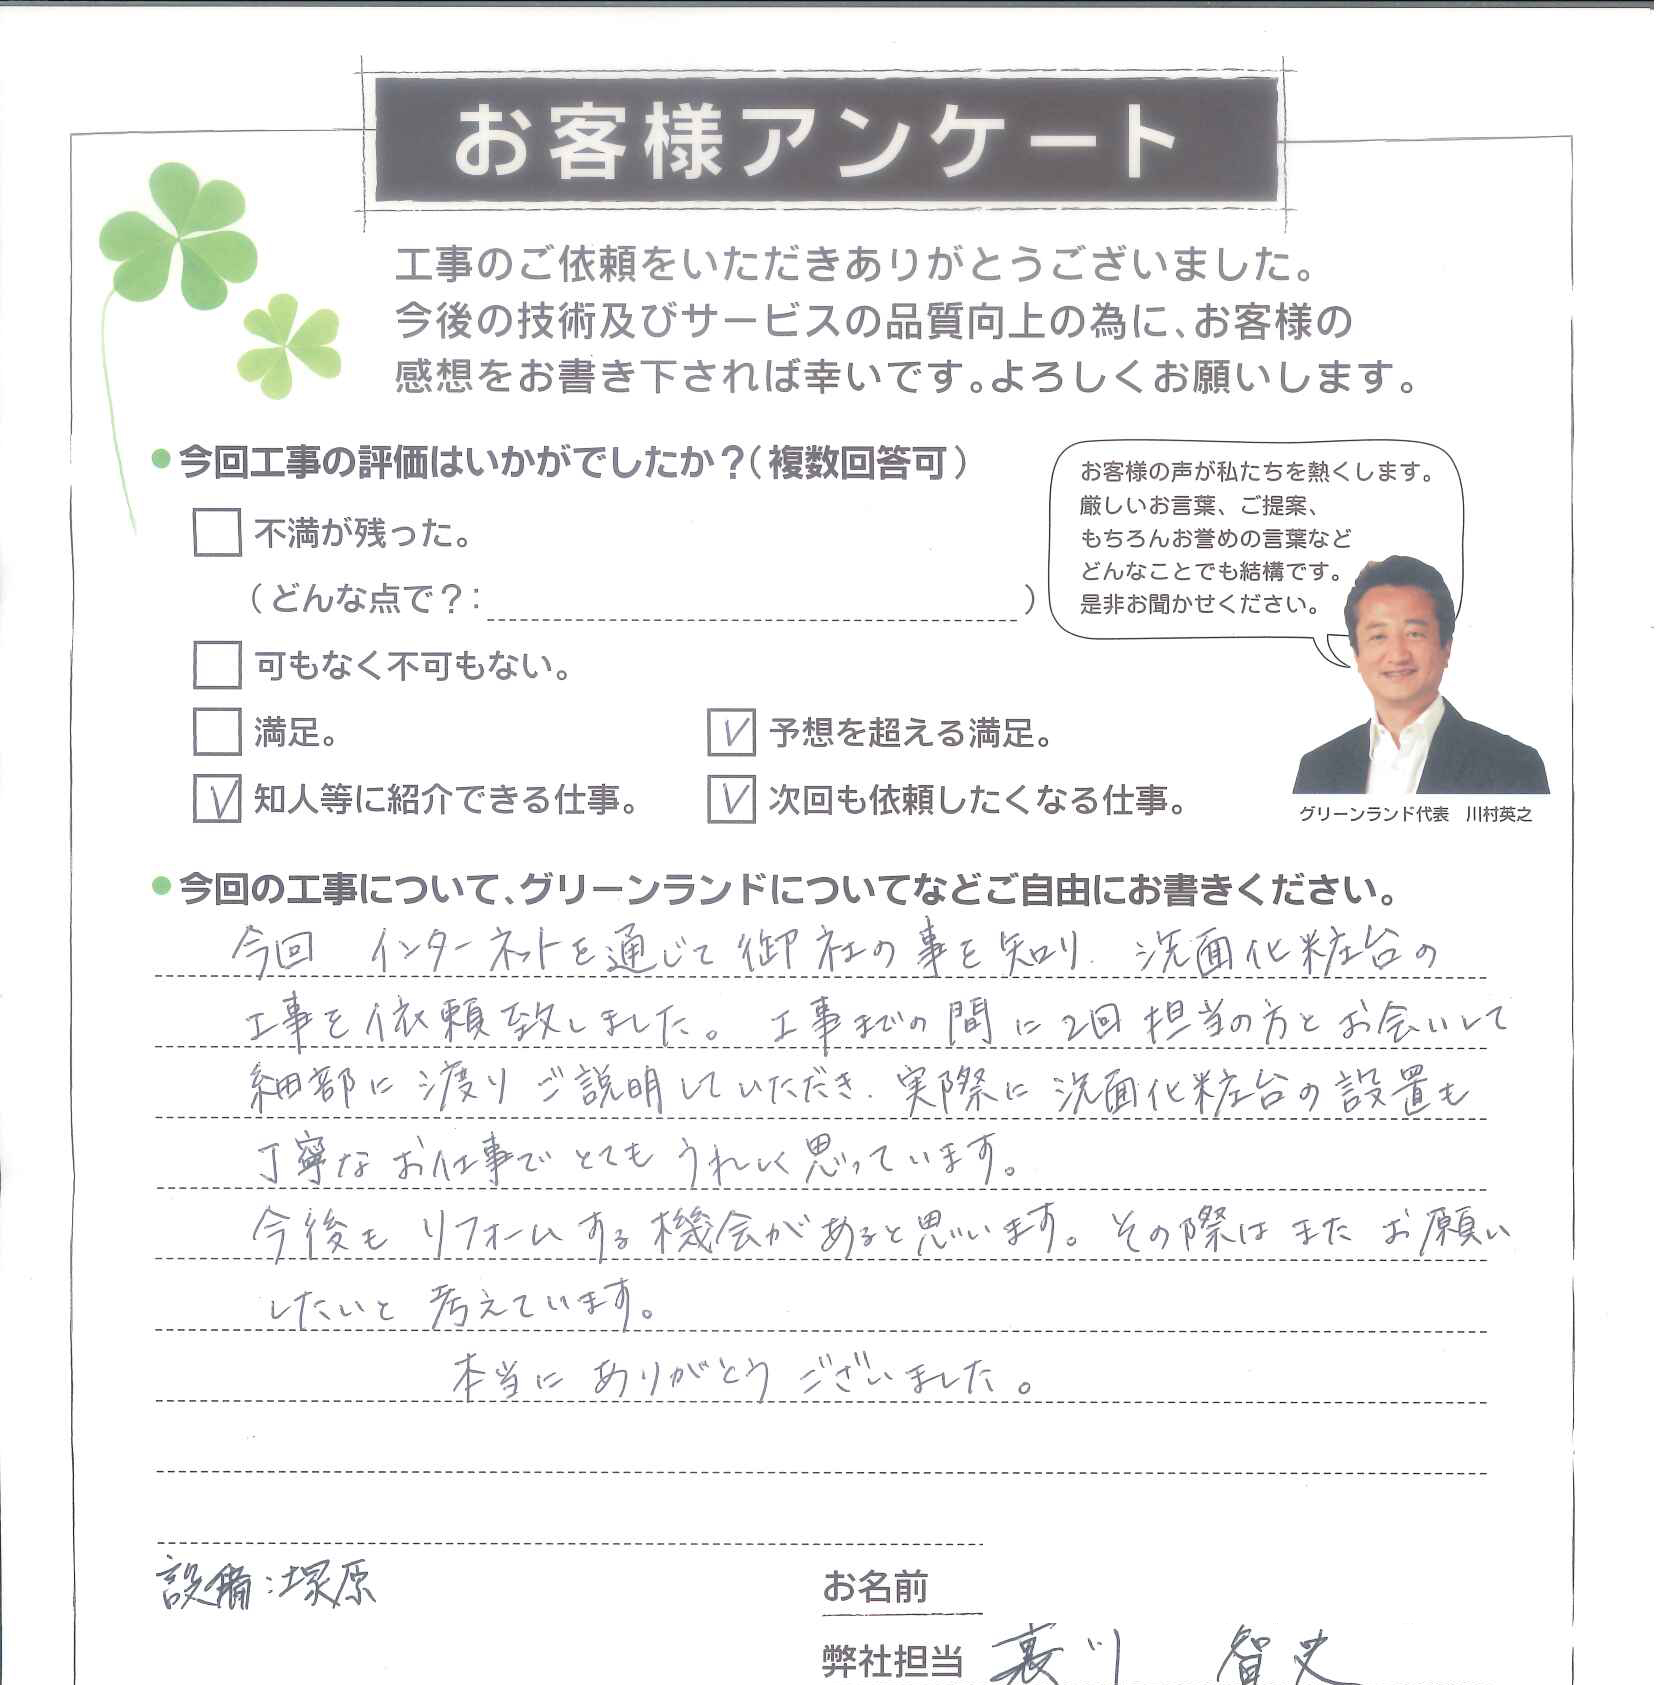 お客様アンケート
工事のご依頼をいただきありがとうございました。
今後の技術及びサービスの品質向上の為に、お客様の
感想をお書き下されば幸いです。よろしくお願いします。
今回工事の評価はいかがでしたか？（複数回答可）
お客様の声が私たちを熱くします。
厳しいお言葉、ご提案、
もちろんお誉めの言葉など
どんなことでも結構です。
是非お聞かせください。
不満が残った。
（どんな点で？： ）
可もなく不可もない。
満足。
予想を超える満足。
知人等に紹介できる仕事。
次回も依頼したくなる仕事。
グリーンランド代表　川村英之
今回の工事について、グリーンランドについてなどご自由にお書きください。
今回 インターネットを通じて御社の事を知り、洗面化粧台の
工事を依頼致しました。工事までの間に2回担当の方とお会いして
細部に渡りご説明していただき、実際に洗面化粧台の設置も
丁寧なお仕事でとてもうれしく思っています。
今後もリフォームする機会があると思います。その際はまたお願い
したいと考えています。
本当にありがとうございました。
設備：塚原
お名前
弊社担当 川 智史